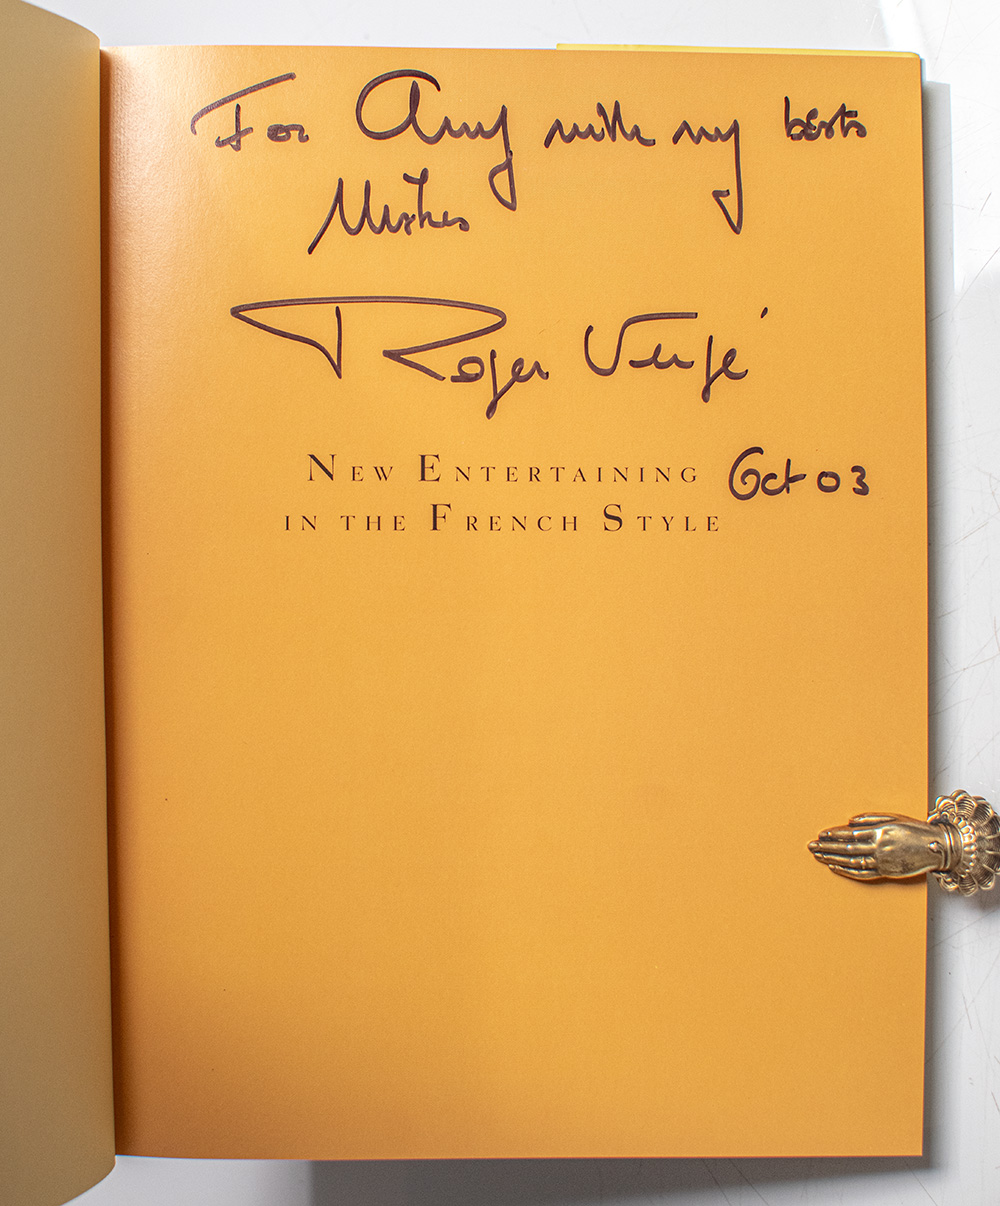 For Amy with my bests
Wishes
Roger Vergé
NEW ENTERTAINING
Oct 03
IN THE FRENCH STYLE